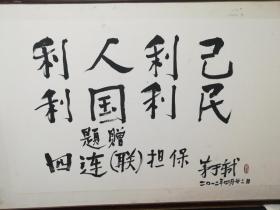 利人利己
利国利民
题赠
四连(联)担保
茅于轼
二〇一二年四月廿二日